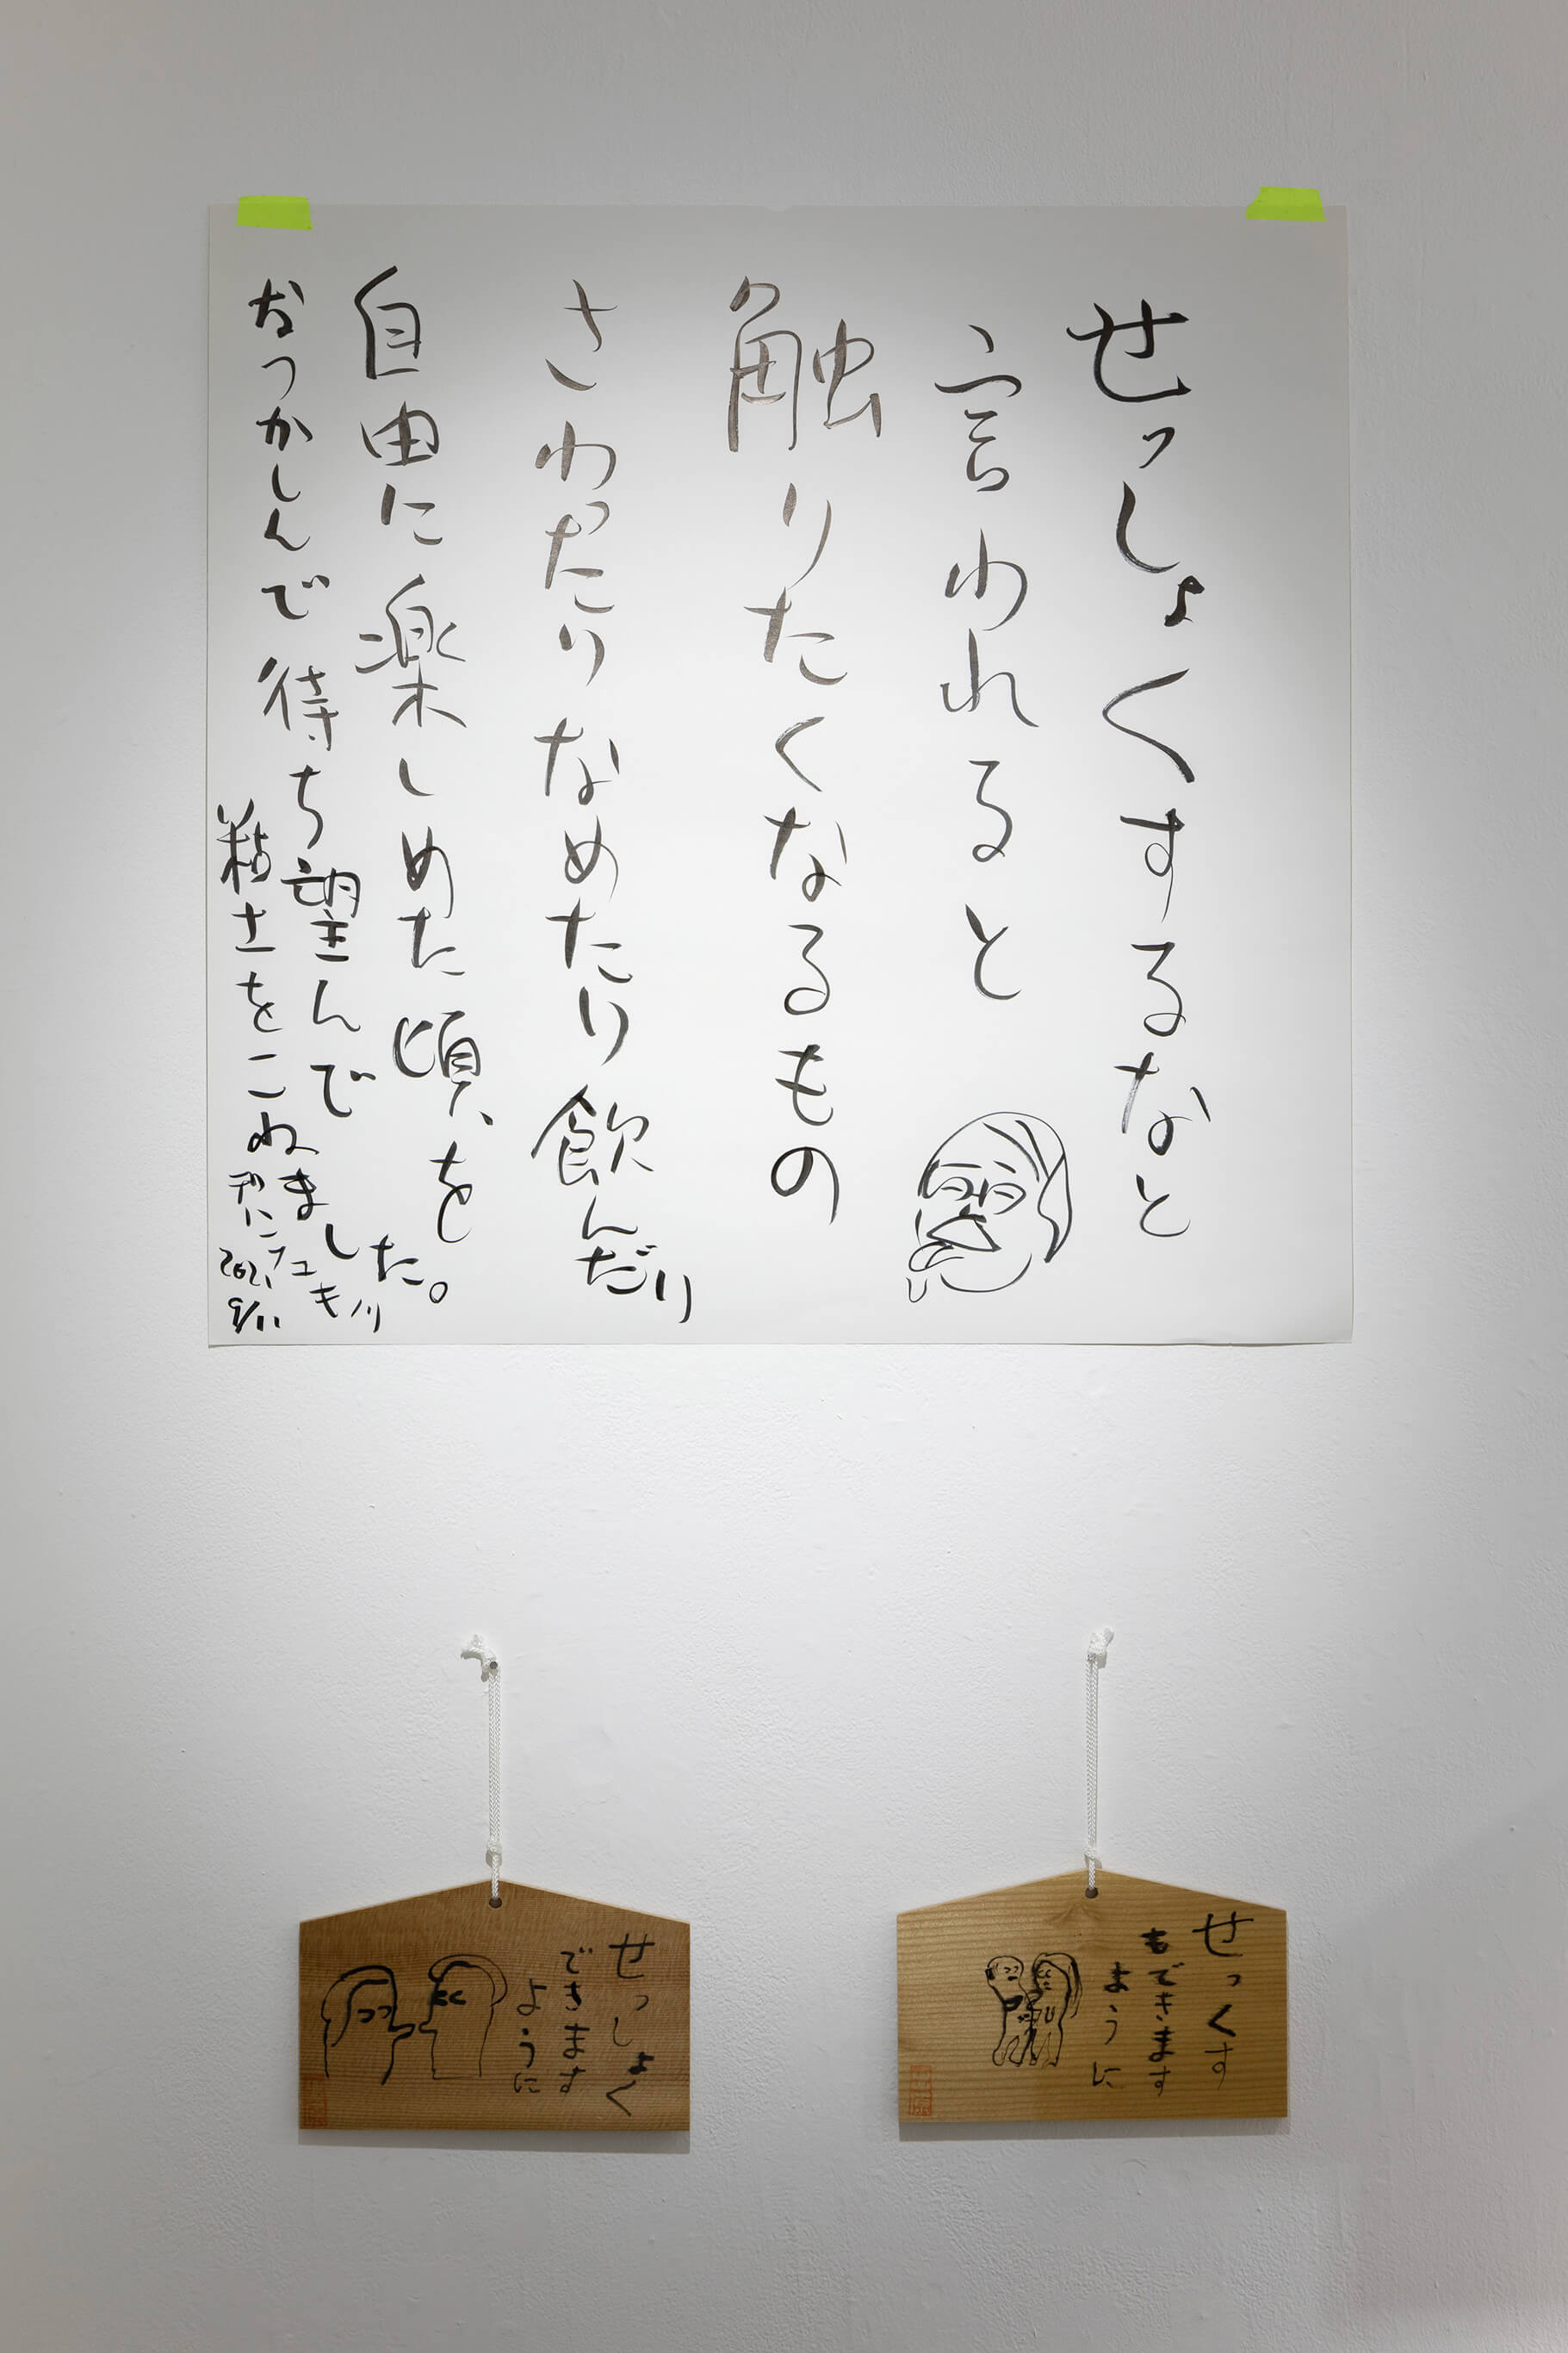 せっしょくするなと
言われると
触りたくなるもの
さわったりなめたり飲んだり
自由に楽しめた頃を
なつかしんで待ち望んで
粘土をこねました。
2021
9/11
せっしょく
できます
ように
せっくす
もできます
ように